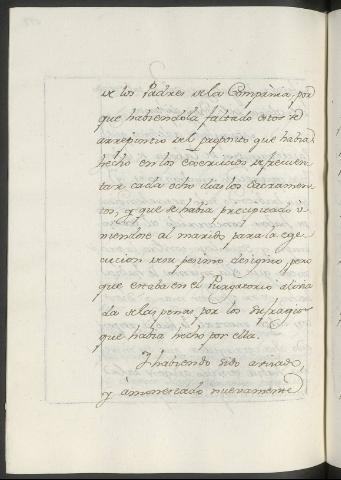 de los Padres de la Compañia, por
que habiendola faltado estos se
arrepintio del proposito que habia
hecho en los exercicios de frecuen
tar cada ocho dias los Sacramen
tos, y que se habia precipitado ú
niendose al marido para la ege
cucion de su pesimo designio, pero
que estaba en el Purgatorio alivia
da de las penas por los sufragios
que habia hecho por ella.
Y habiendo sido avisado,
y amonestado nuevamente